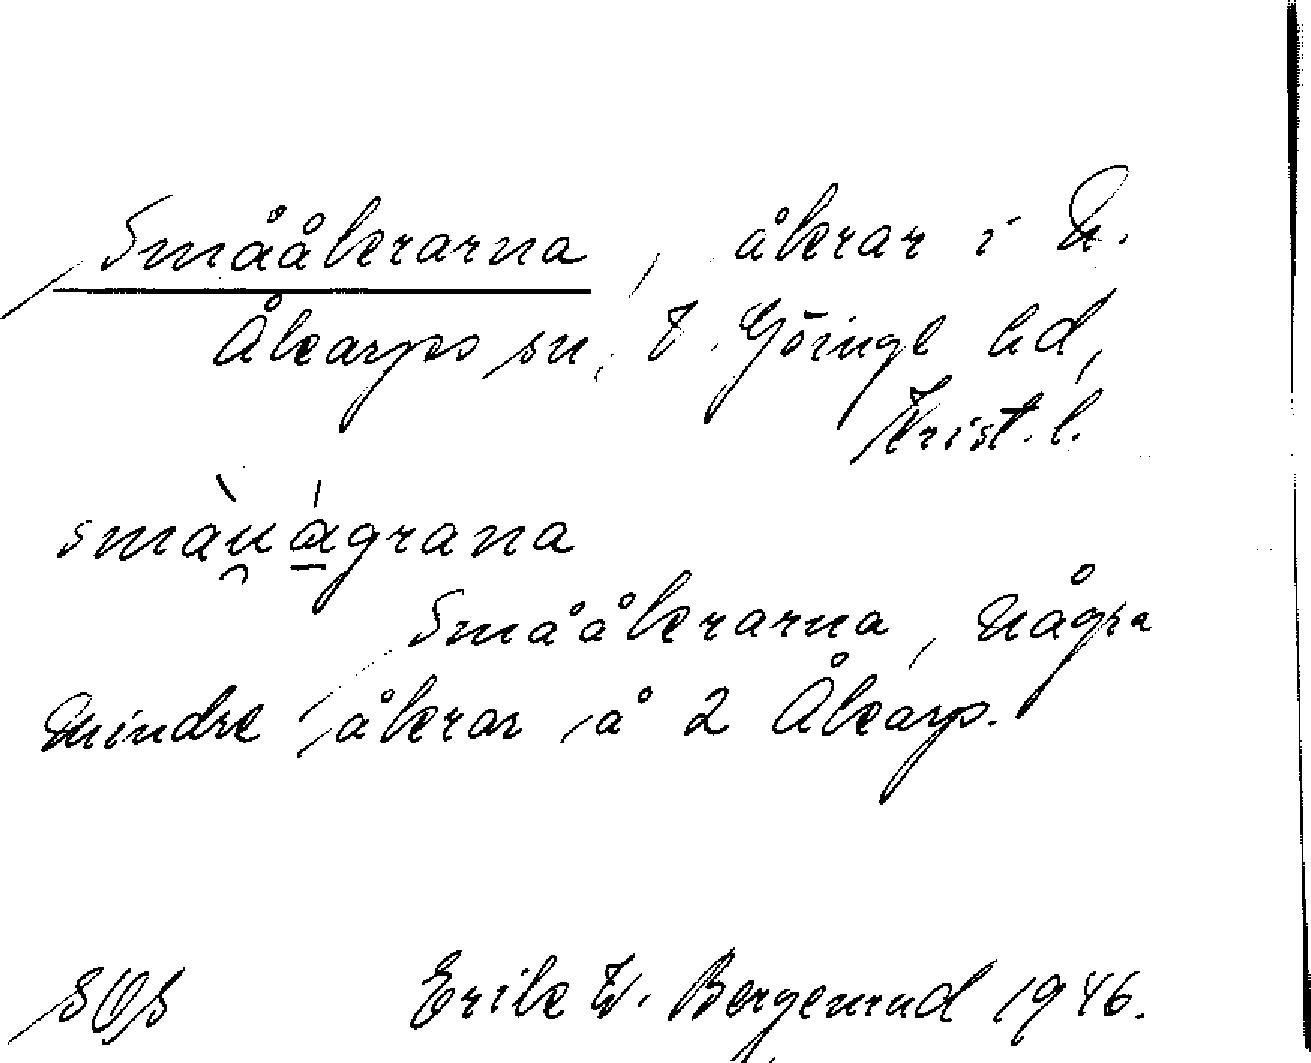 Smååkrarna, åkrar i N.
Åkarps sn, V. Göinge hd,
Krist. l.
smàu̯ágrana
Smååkrarna, några
mindre åkrar å 2 Åkarp.
SOS Erik W. Bergenrud 1946.